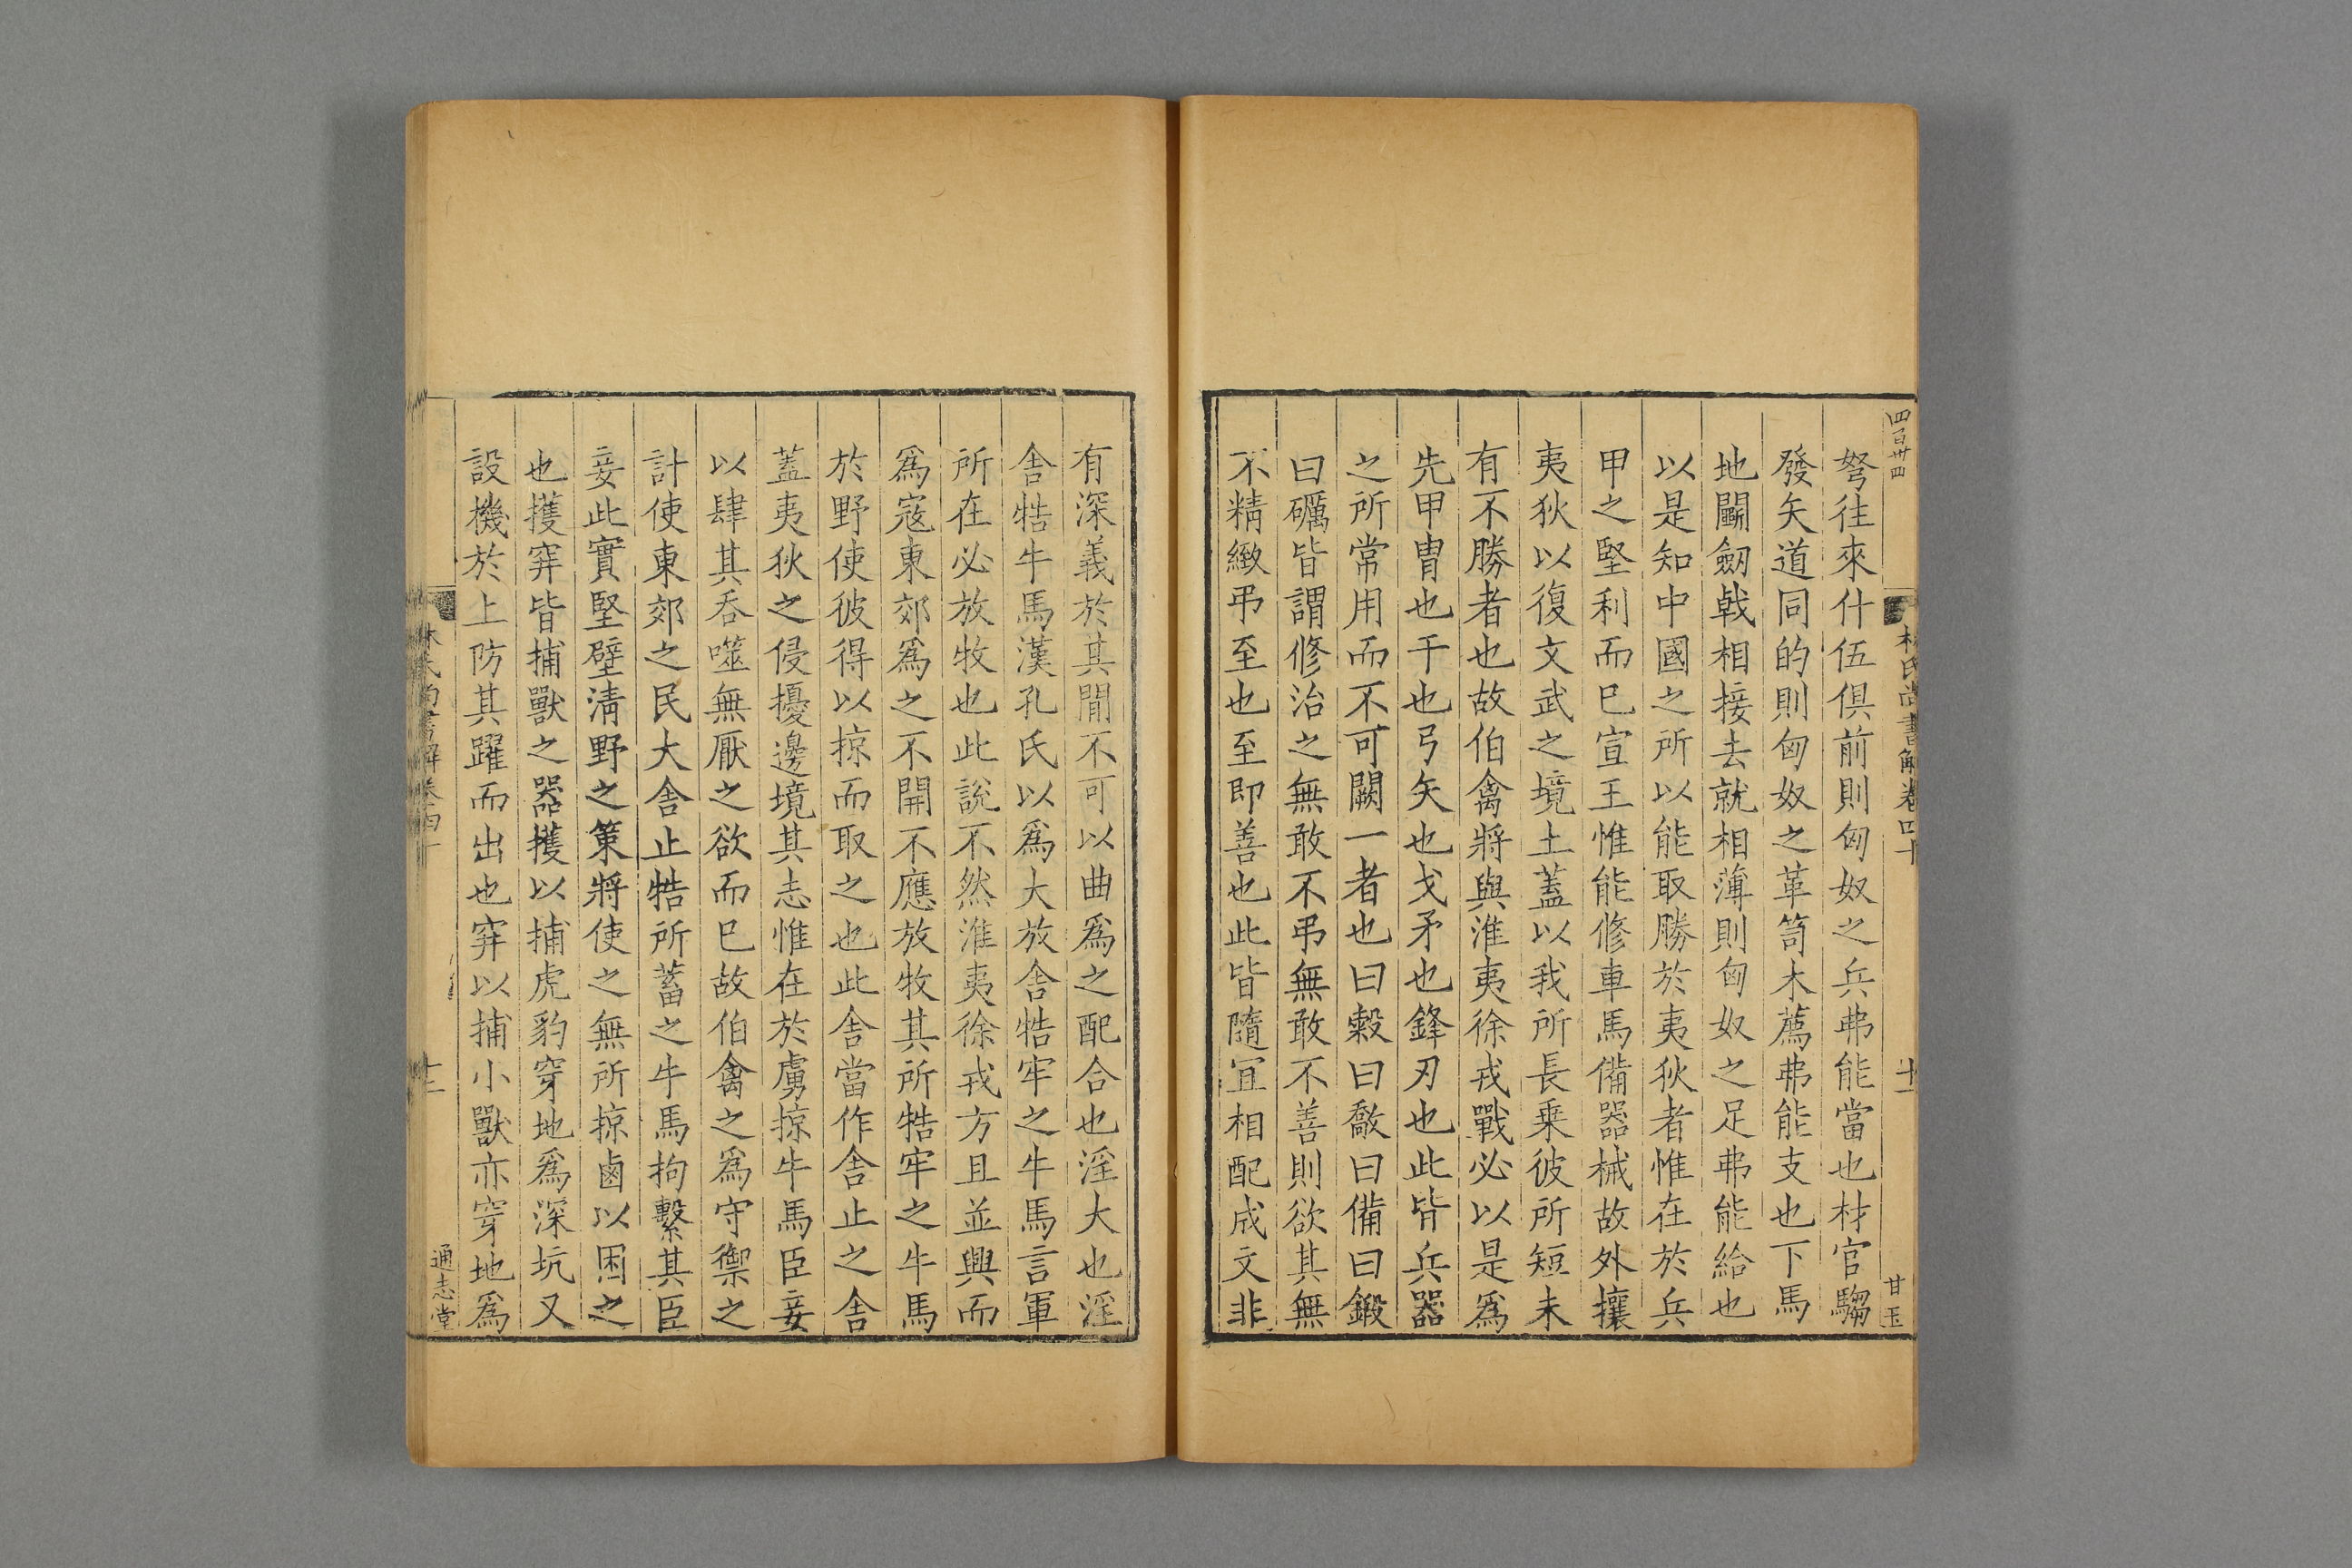 四百卅四
林氏尚書解卷四十
十一
甘玉
弩往來什伍俱前則匈奴之兵弗能當也材官騶
發矢道同的則匈奴之革笥木薦弗能支也下馬
地鬭劒戟相接去就相薄則匈奴之足弗能給也
以是知中國之所以能取勝於夷狄者惟在於兵
甲之堅利而已宣王惟能修車馬備器械故外攘
夷狄以復文武之境土蓋以我所長乗彼所短未
有不勝者也故伯禽將與淮夷徐戎戰必以是爲
先甲冑也干也弓矢也戈矛也鋒刃也此皆兵器
之所常用而不可闕一者也曰敹曰敿曰備曰鍛
曰礪皆謂修治之無敢不弔無敢不善則欲其無
不精緻弔至也至即善也此皆隨宜相配成文非
有深義於其閒不可以曲爲之配合也淫大也淫
舍牿牛馬漢孔氏以爲大放舍牿牢之牛馬言軍
所在必放牧也此說不然淮夷徐戎方且並興而
爲寇東郊爲之不開不應放牧其所牿牢之牛馬
於野使彼得以掠而取之也此舍當作舍止之舍
蓋夷狄之侵擾邊境其志惟在於虜掠牛馬臣妾
以肆其吞噬無厭之欲而已故伯禽之爲守禦之
計使東郊之民大舍止牿所蓄之牛馬拘繫其臣
妾此實堅壁淸野之策將使之無所掠鹵以困之
也擭穽皆捕獸之器擭以捕虎豹穿地爲深坑又
設機於上防其躍而出也穽以捕小獸亦穿地爲
林氏尚書解卷四十
十二
通志堂